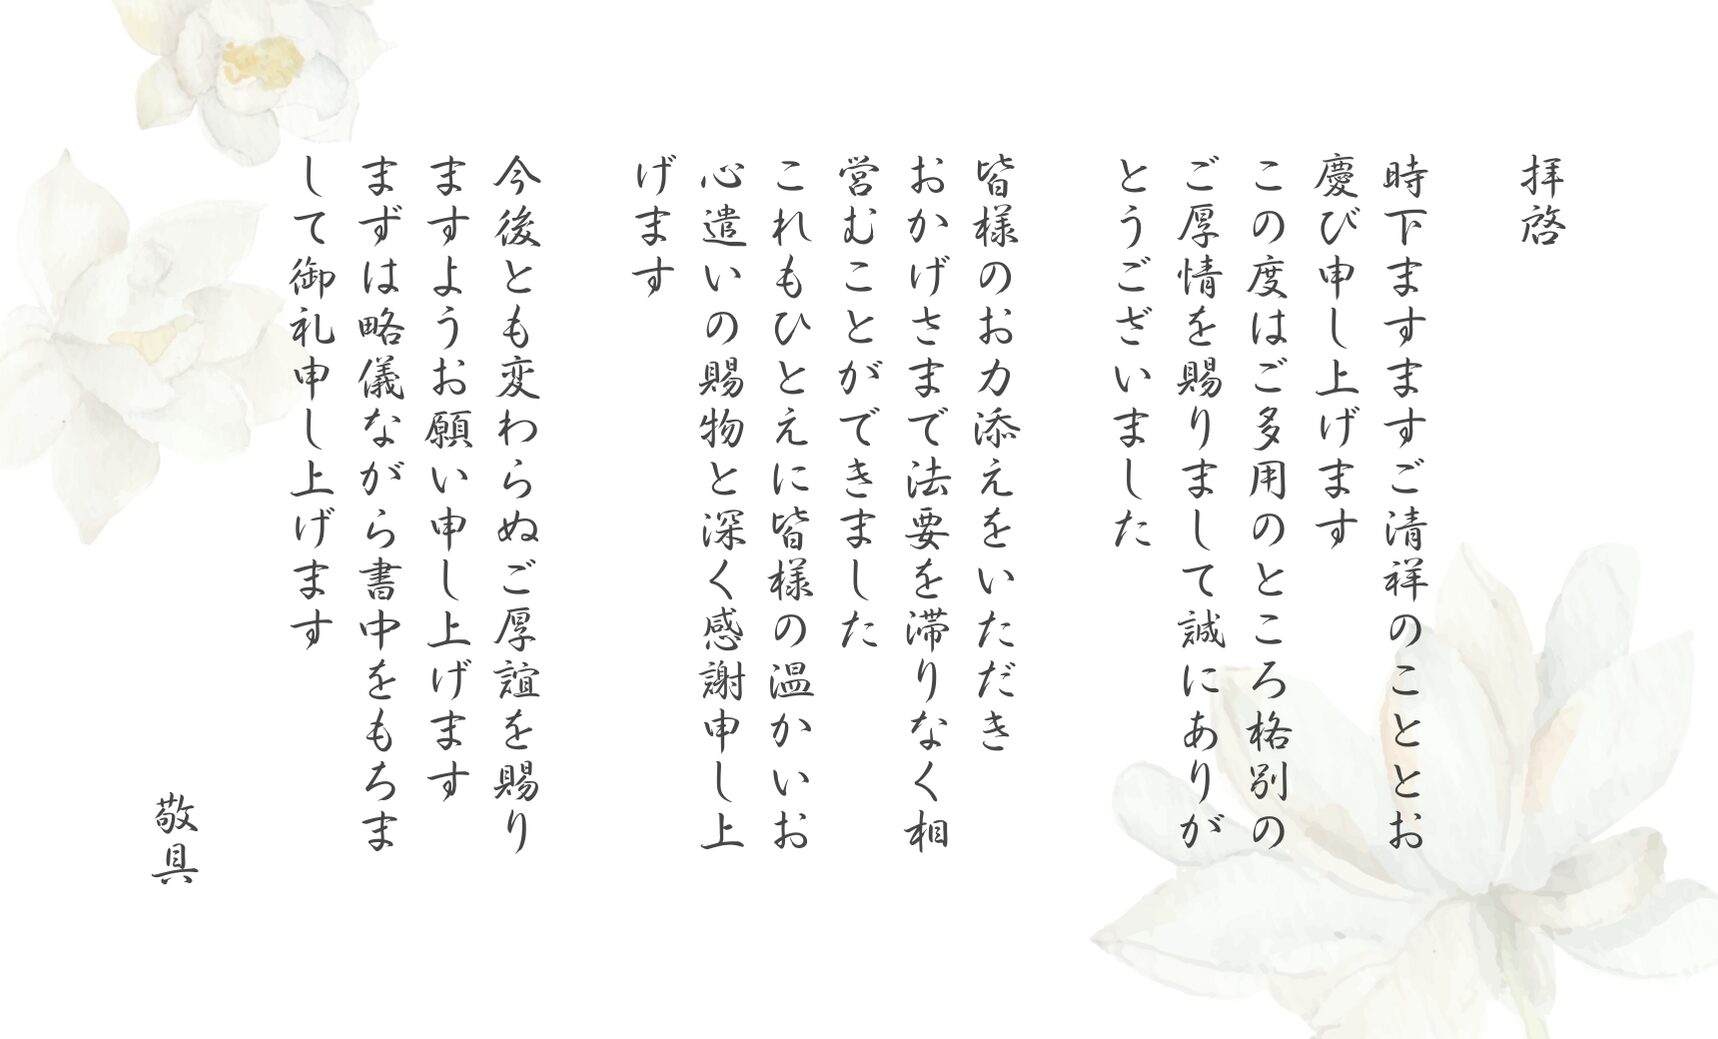 拝啓
時下ますますご清祥のこととお
慶び申し上げます
この度はご多用のところ格別の
ご厚情を賜りまして誠にありが
とうございました
皆様のお力添えをいただき
おかげさまで法要を滞りなく相
営むことができました
これもひとえに皆様の温かいお
心遣いの賜物と深く感謝申し上
げます
今後とも変わらぬご厚誼を賜り
ますようお願い申し上げます
まずは略儀ながら書中をもちま
して御礼申し上げます
敬具